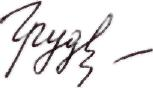 Груди –